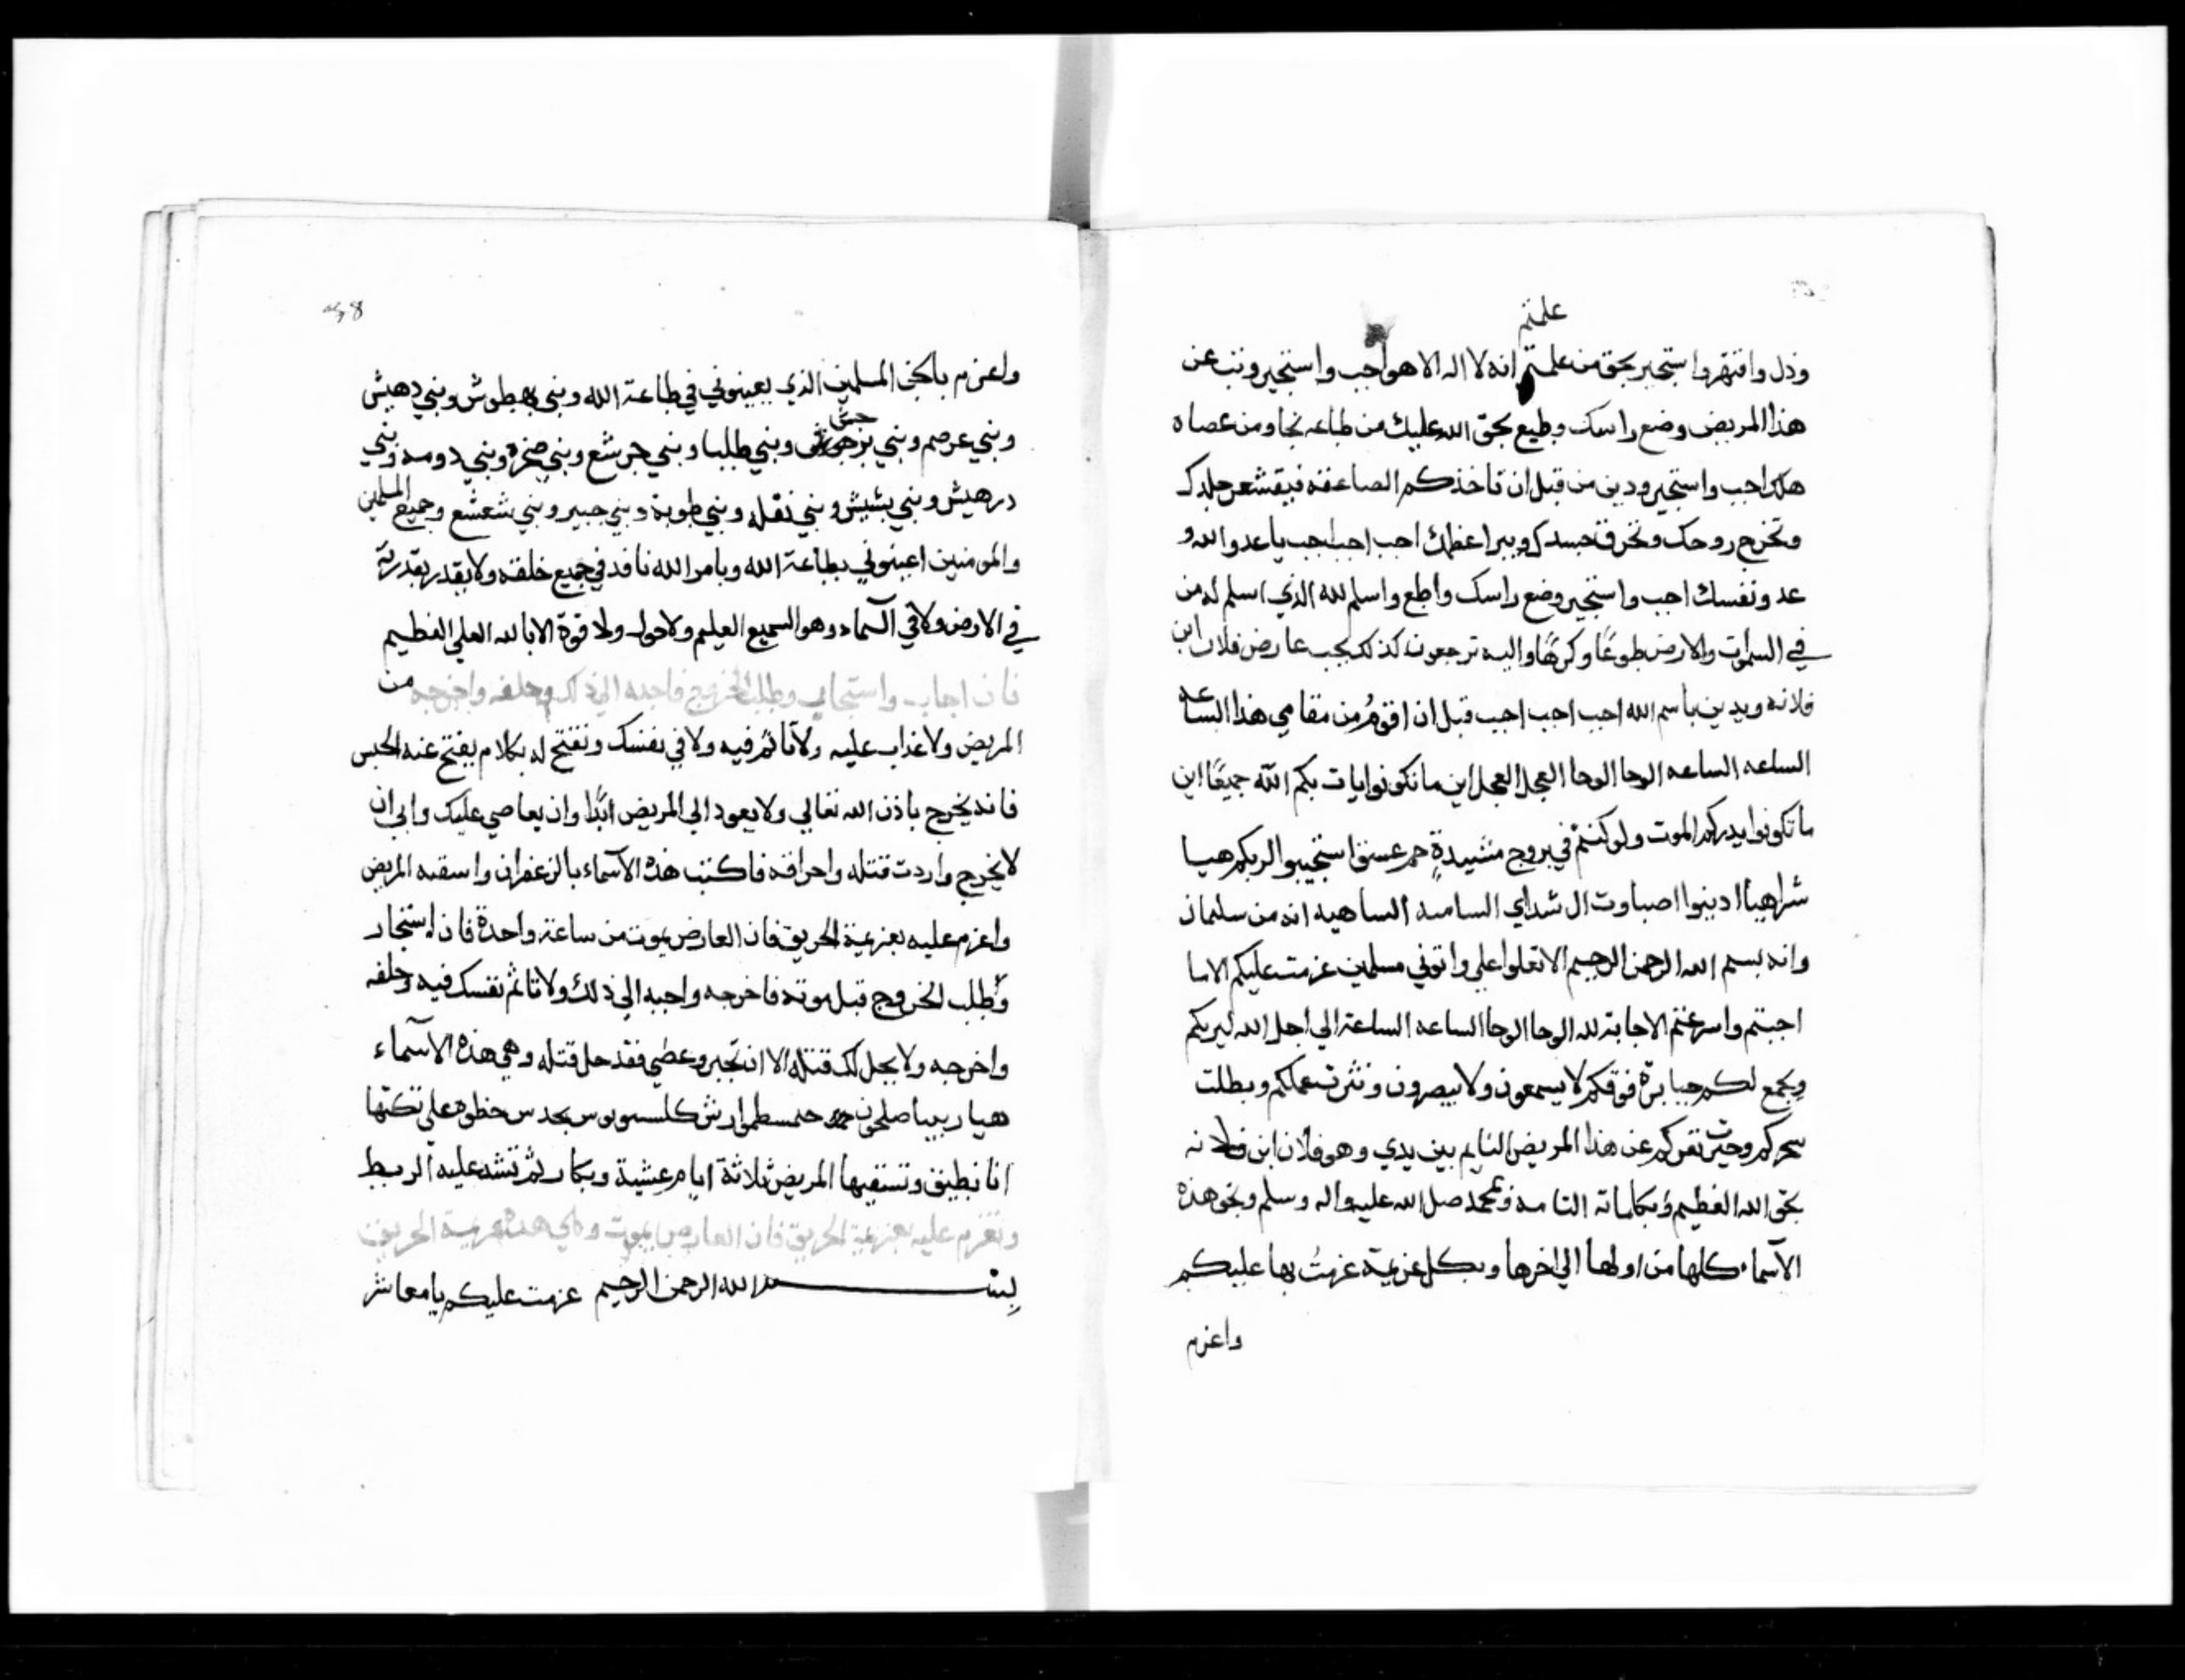 علمتم
وذل وافتهر واستجير بحق من علمتم انه لا اله الا هو اجب واستجير وتب عن
هذا المريض وضع راسك وطيع بحق الله عليك من طاعه نجا ومن عصاه
هلك اجب واستجير ودين من قبل ان تاخذكم الصاعقه فيقشعر جلدك
وتخرج روحك وتحرق جسدك ويبرا عظمك اجب اجب اجب يا عدو الله و
عدو نفسك اجب واستجير وضع راسك واطع واسلم لله الذي اسلم له من
في السموات والارض طوعًا وكرهًا واليه ترجعون كذلك يجب عارض فلان ابن
فلانه ويدين باسم الله اجب اجب اجيب قبل ان اقوم من مقامي هذا الساعه
الساعه الساعه الوحا الوحا العجل العجل اين ما تكونوا يات بكم الله جميعًا اين
ما تكونوا يدرككم الموت ولو كنتم في بروج مشيدةٍ حم عسق استجيبوا لربكم هيا
شراهيا ادينوا اصباوت ال شداي السامعه الساهيه انه من سليمان
وانه بسم الله الرحمن الرحيم الا تعلوا علي واتوني مسلمين عزمت عليكم الا ما
اجبتم واسرعتم الاجابة لله الوحا الوحا الساعه الساعة الي اجل الله ليريكم
ويجمع لكم جبابرة فوقكم لا يسمعون ولا يبصرون ونثرت عملكم وبطلت
سحركم وحيث تفركم عن هذا المريض النايم بين يدي وهو فلان ابن فلانه
بحق الله العظيم وبكلماته التامه وبمحمد صل الله عليه واله وسلم وبحق هذه
الآسماء كلها من اولها الي اخرها وبكل عزيمة عزمتُ بها عليكم
واعزم
واعزم بالجن المسلمين الذي يعينوني في طاعة الله وبني بهطوش وبني دهيش
وبني عرصم وبني برجوش وبني طلبا وبني جرشع وبني صخرة وبني دومه وبني
درهيش وبني بشيش وبني نقله وبني طوبة وبني جبير وبني شعشع وجميع المسلمين
والمومنين اعينوني بطاعة الله وبامر الله نافد في جميع خلقه ولا يقدر بقدرته
في الارض ولا في السماء وهو السميع العليم ولا حول ولا قوة الا بالله العلي العظيم
فان اجاب واستجاب وطلب الخروج فاجبه الي ذلك وحلفه واخرجه من
المريض ولا عذاب عليه ولا تاثم فيه ولا في نفسك وتفتح له بكلام يفتح عنه الحبس
فانه يخرج باذن الله تعالي ولا يعود الي المريض ابدًا وان يعاصي عليك وابي ان
لا يخرج واردت قتله واحراقه فاكتب هذه الآسماء بالزعفران واسقه المريض
واعزم عليه بعزيمة الحريق فان العارض يموت من ساعة واحدة فان استجار
وطلب الخروج قبل موته فاخرجه واجبه الي ذلك ولا تاثم نفسك فيه وحلفه
واخرجه ولا يحل لك قتله الا ان تجبر وعصي فقد حل قتله وهي هذه الآسماء
تكتبها علي
انا نطيف وتسقيها المريض ثلاثة ايام عشية وبكار ثم تشد عليه الربط
وتعزم عليه بعزيمة الحريق فان العارض يموت وهي هذه عزيمة الحريق
بسم الله الرحمن الرحيم عزمت عليكم يا معاشر